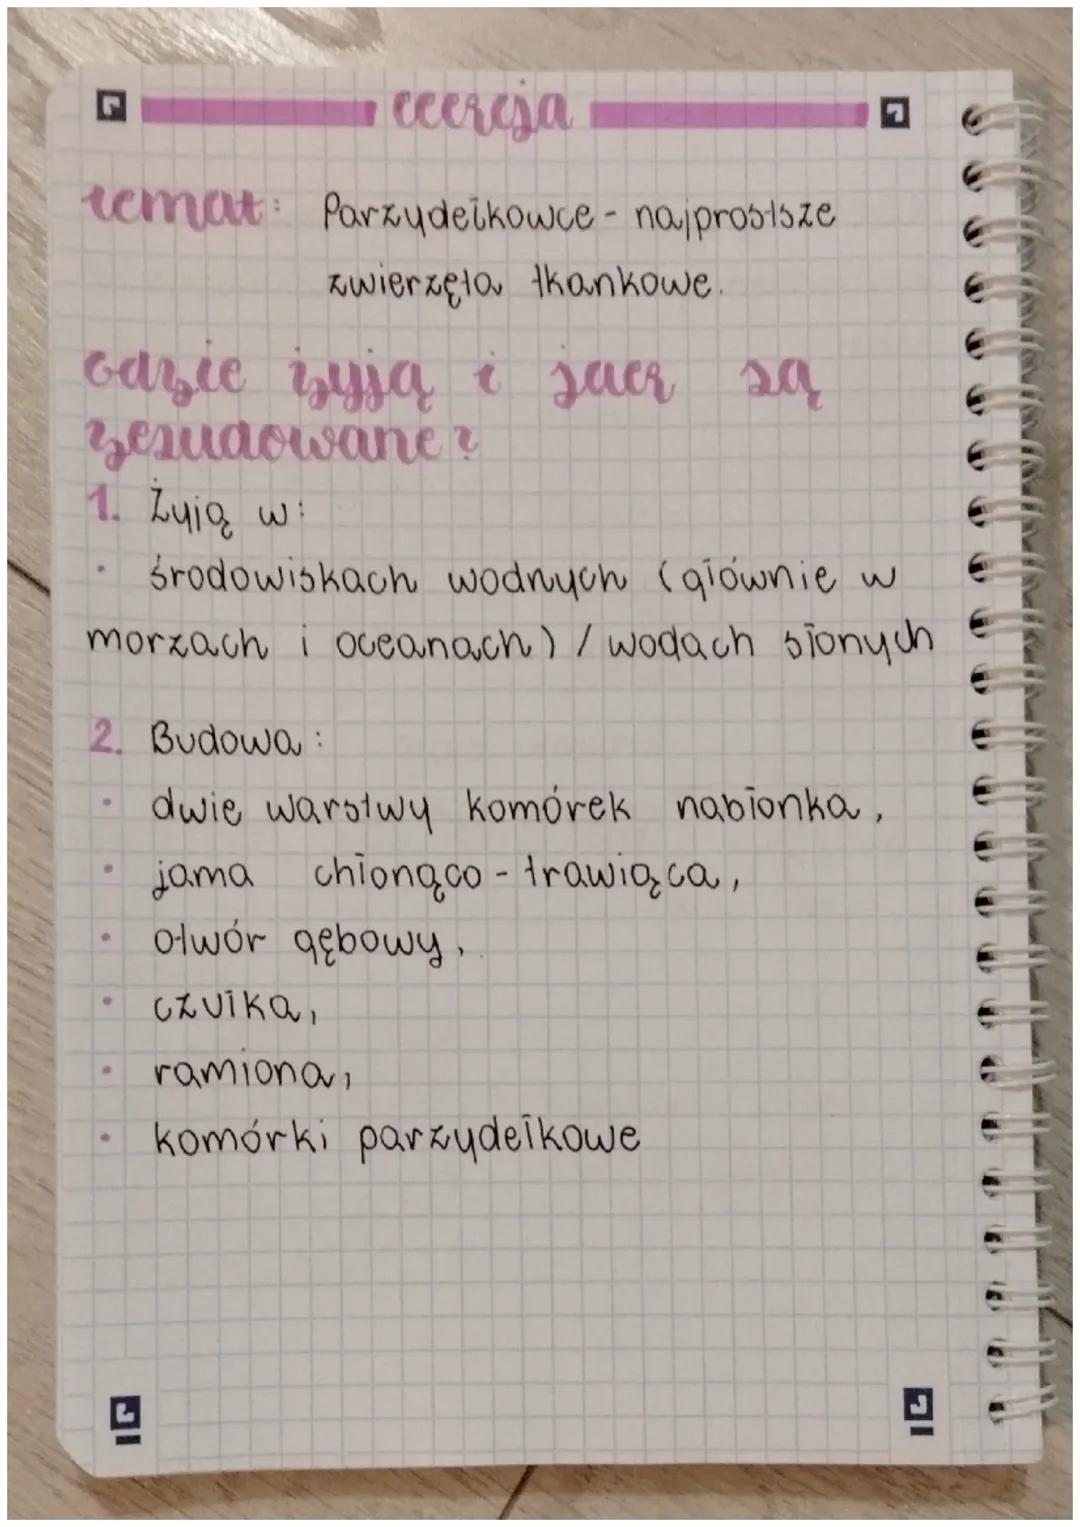 lekcja
temat: Parzydełkowce - najprostsze
zwierzęta tkankowe.
Gdzie żyją i jak są
zbudowane?
1. Żyją w:
• środowiskach wodnych (głównie w
morzach i oceanach) / wodach słonych
2. Budowa:
• dwie warstwy komórek nabłonka,
• jama chłonąco - trawiąca,
• otwór gębowy,
• czułka,
• ramiona,
• komórki parzydełkowe